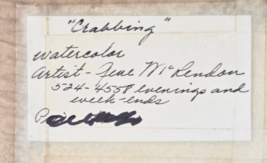 "Crabbing"
watercolor
Artist - McLendon
524-4558 evenings and
week-ends